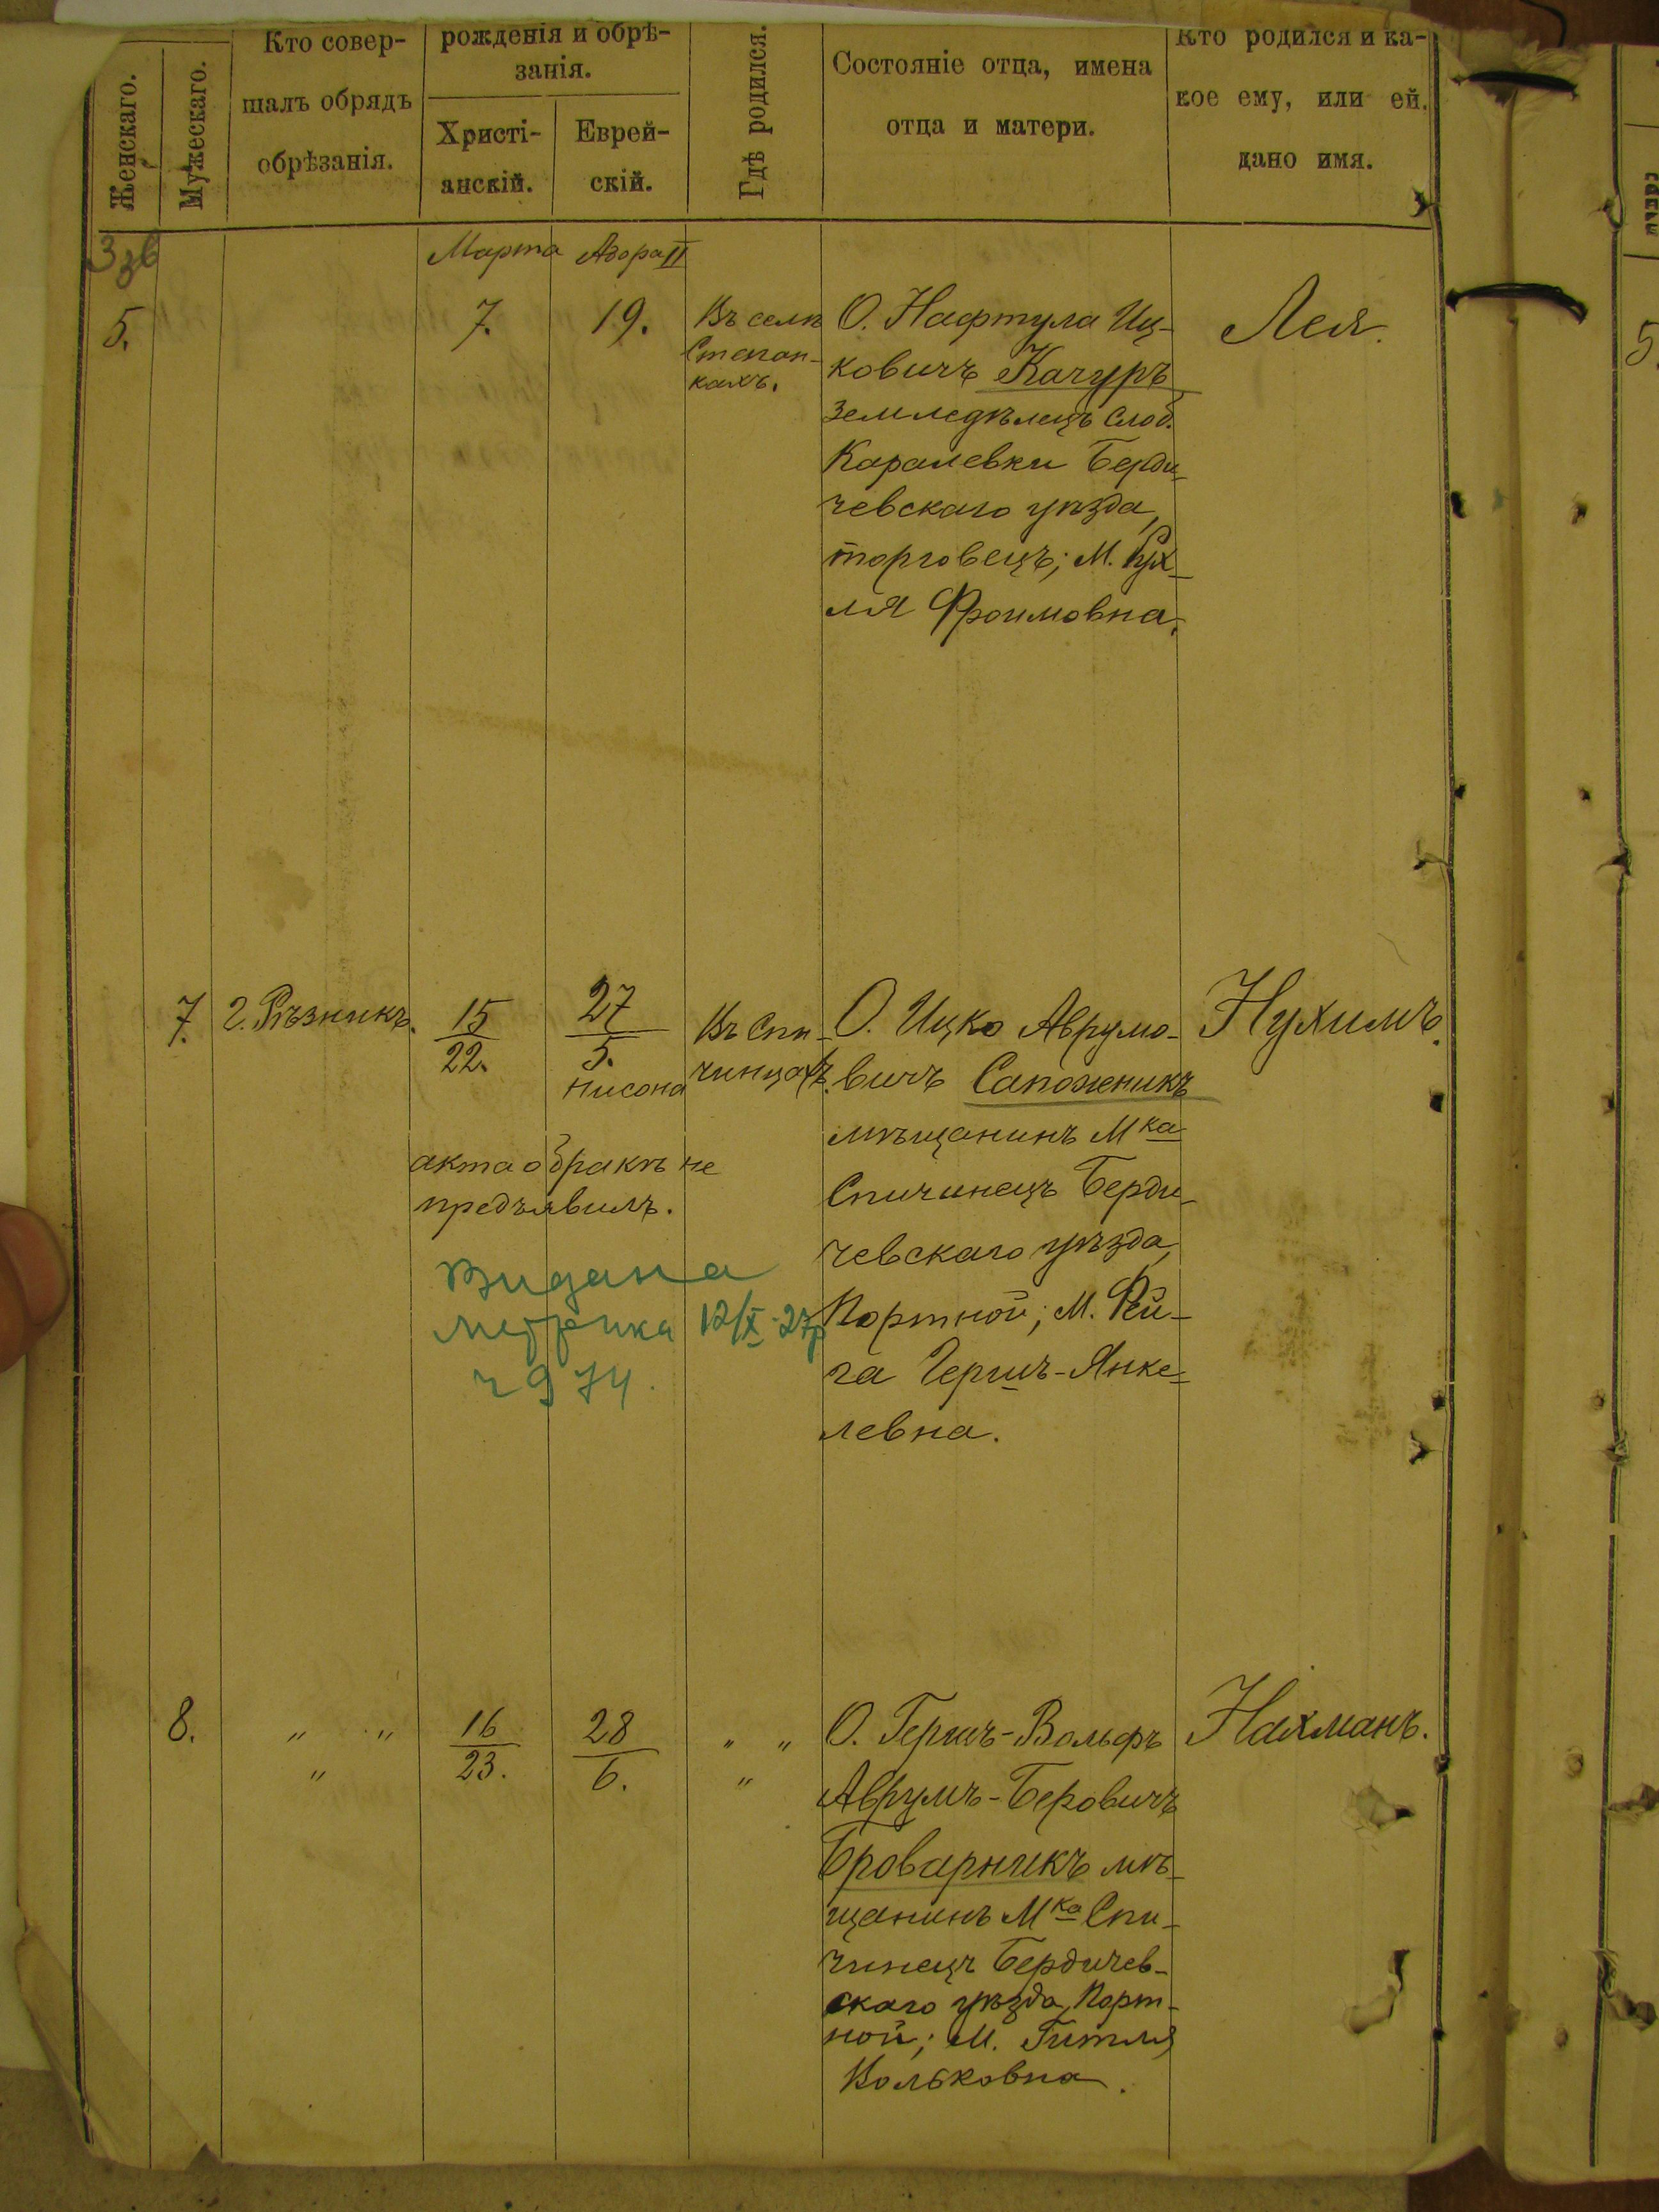 Женскаго.
Мужескаго.
Кто совер-
шалъ обрядъ
обрѣзанія.
рожденія и обрѣ-
занія.
Христі-
анскій.
Еврей-
скій.
Гдѣ родился.
Состояніе отца, имена
отца и матери.
Кто родился и ка-
кое ему, или ей.
дано имя.
Марта
Адора II
5.
7.
19.
Въ селѣ
Степан-
кахъ.
О. Нафтула Иц-
ковичъ Качуръ
земледѣлецъ слоб.
Каралевки Берди-
чевскаго уѣзда,
торговецъ; М. Рух-
ля Фроимовна.
Лея.
5.
7.
г. Рѣзникъ.
15
22.
27
5.
Нисона
Въ Спи-
чинцахъ.
О. Ицко Аврумо-
вичъ Сапожникъ
мѣщанинъ Мка
Спичинецъ Берди-
чевскаго уѣзда,
Портной; М. Фей-
га Гершъ-Янке-
левна.
Нухимъ.
акта о бракѣ не
предъявилъ.
Видана
метрика 12/X-27р
ч 974.
8.
„ „
„
16
23.
28
6.
„ „
„
О. Гершъ-Вольфъ
Аврумъ-Беровичъ
Броварникъ мѣ-
щанинъ Мка Спи-
чинецъ Бердичев-
скаго уѣзда, Порт-
ной; М. Гитля
Вольковна.
Нахманъ.